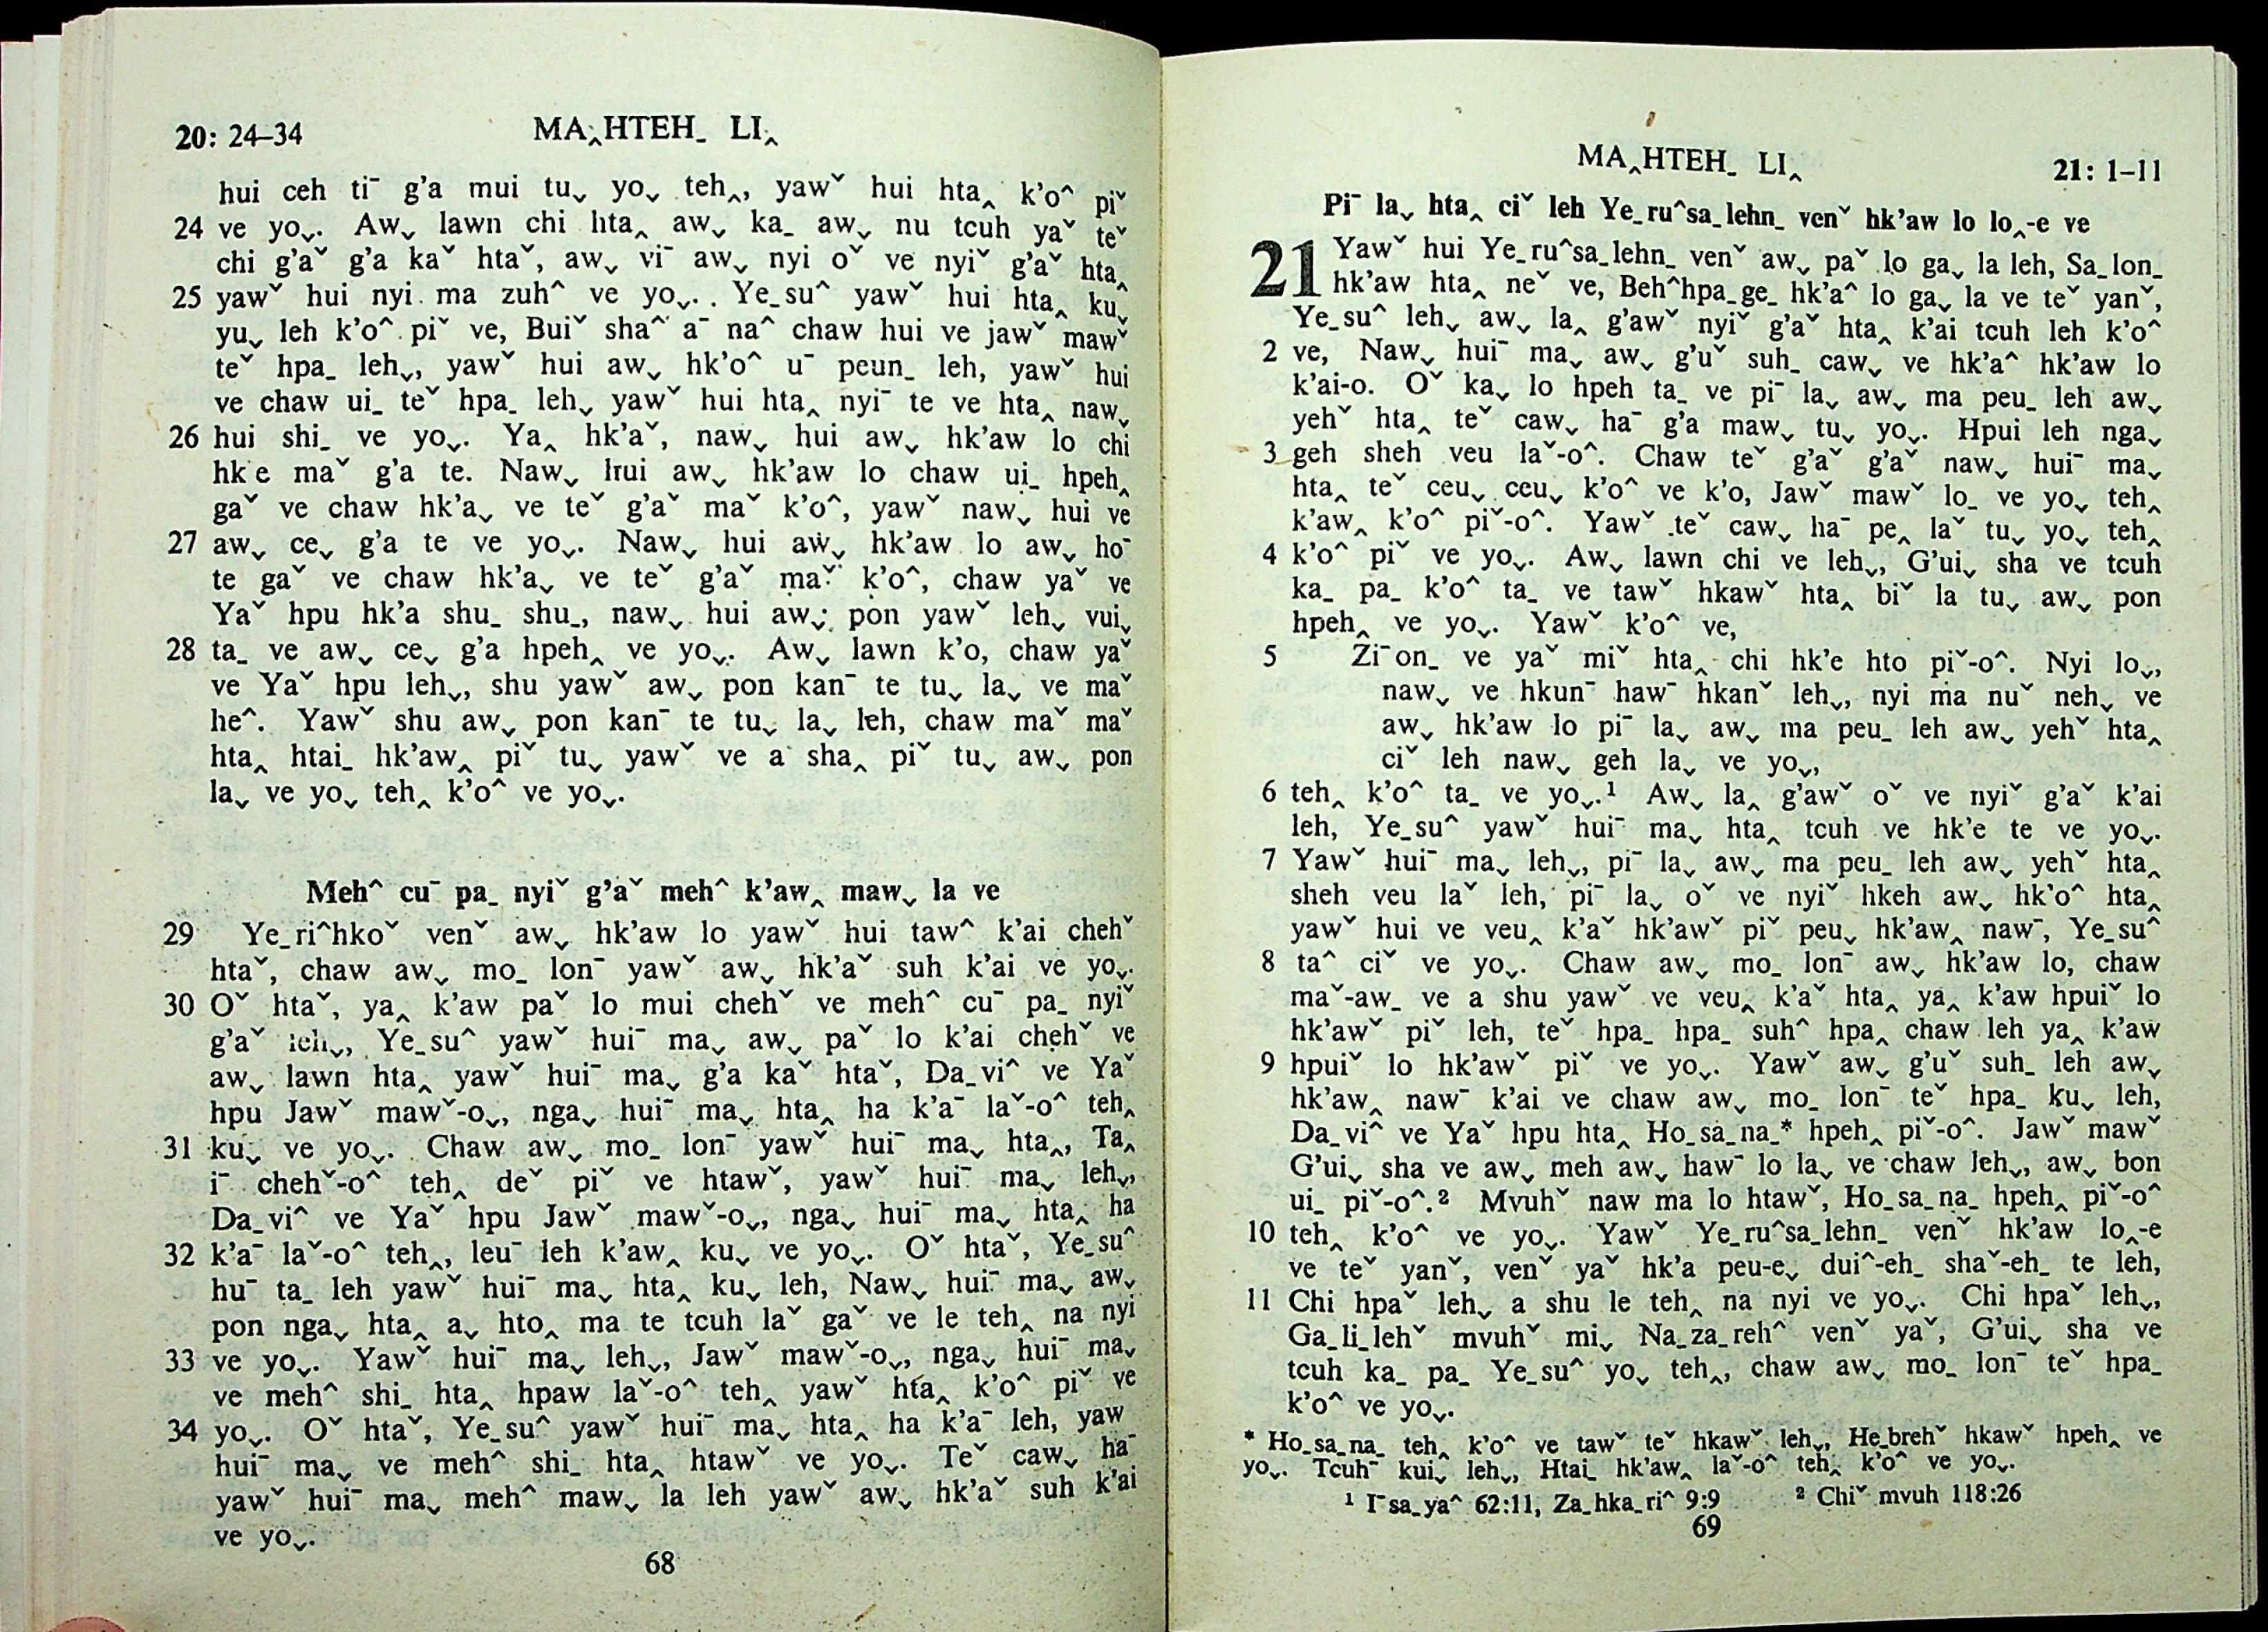 20: 24–34
MA‸HTEH_ LI‸
hui ceh ti¯ g'a mui tu˯ yo˯ teh‸, yawˇ hui hta‸ k'o^ piˇ
24 ve yo˯. Aw˯ lawn chi hta‸ aw˯ ka_ aw˯ nu tcuh yaˇ teˇ
chi g'aˇ g'a kaˇ htaˇ, aw˯ vi¯ aw˯ nyi oˇ ve nyiˇ g'aˇ hta‸
25 yawˇ hui nyi ma zuh^ ve yo˯. Ye_su^ yawˇ hui hta‸ ku˯
yu˯ leh k'o^ piˇ ve, Buiˇ sha^ a¯ na^ chaw hui ve jawˇ mawˇ
teˇ hpa_ leh˯, yawˇ hui aw˯ hk'o^ u¯ peun_ leh, yawˇ hui
ve chaw ui_ teˇ hpa_ leh˯ yawˇ hui hta‸ nyi¯ te ve hta‸ naw˯
26 hui shi_ ve yo˯. Ya‸ hk'aˇ, naw˯ hui aw˯ hk'aw lo chi
hk'e maˇ g'a te. Naw˯ hui aw˯ hk'aw lo chaw ui_ hpeh‸
gaˇ ve chaw hk'a˯ ve teˇ g'aˇ maˇ k'o^, yawˇ naw˯ hui ve
27 aw˯ ce˯ g'a te ve yo˯. Naw˯ hui aw˯ hk'aw lo aw˯ ho¯
te gaˇ ve chaw hk'a˯ ve teˇ g'aˇ maˇ k'o^, chaw yaˇ ve
Yaˇ hpu hk'a shu_ shu_, naw˯ hui aw˯ pon yawˇ leh˯ vui˯
28 ta_ ve aw˯ ce˯ g'a hpeh‸ ve yo˯. Aw˯ lawn k'o, chaw yaˇ
ve Yaˇ hpu leh˯, shu yawˇ aw˯ pon kan¯ te tu˯ la˯ ve maˇ
he^. Yawˇ shu aw˯ pon kan¯ te tu˯ la˯ leh, chaw maˇ maˇ
hta‸ htai_ hk'aw‸ piˇ tu˯ yawˇ ve a sha‸ piˇ tu˯ aw˯ pon
la˯ ve yo˯ teh‸ k'o^ ve yo˯.
Meh^ cu¯ pa_ nyiˇ g'aˇ meh^ k'aw‸ maw˯ la ve
29 Ye_ri^hkoˇ venˇ aw˯ hk'aw lo yawˇ hui taw^ k'ai chehˇ
htaˇ, chaw aw˯ mo_ lon¯ yawˇ aw˯ hk'aˇ suh k'ai ve yo˯.
30 Oˇ htaˇ, ya‸ k'aw paˇ lo mui chehˇ ve meh^ cu¯ pa_ nyiˇ
g'aˇ leh˯, Ye_su^ yawˇ hui¯ ma˯ aw˯ paˇ lo k'ai chehˇ ve
aw˯ lawn hta‸ yawˇ hui¯ ma˯ g'a kaˇ htaˇ, Da_vi^ ve Yaˇ
hpu Jawˇ mawˇ-o˯, nga˯ hui¯ ma˯ hta‸ ha k'a¯ laˇ-o^ teh‸
31 ku˯ ve yo˯. Chaw aw˯ mo_ lon¯ yawˇ hui¯ ma˯ hta‸, Ta‸
i¯ chehˇ-o^ teh‸ deˇ piˇ ve htawˇ, yawˇ hui¯ ma˯ leh˯,
Da_vi^ ve Yaˇ hpu Jawˇ mawˇ-o˯, nga˯ hui¯ ma˯ hta‸ ha
32 k'a¯ laˇ-o^ teh‸, leu¯ leh k'aw‸ ku˯ ve yo˯. Oˇ htaˇ, Ye_su^
hu¯ ta_ leh yawˇ hui¯ ma˯ hta‸ ku˯ leh, Naw˯ hui¯ ma˯ aw˯
pon nga˯ hta‸ a˯ hto‸ ma te tcuh laˇ gaˇ ve le teh‸ na nyi
33 ve yo˯. Yawˇ hui¯ ma˯ leh˯, Jawˇ mawˇ-o˯, nga˯ hui¯ ma˯
ve meh^ shi_ hta‸ hpaw laˇ-o^ teh‸ yawˇ hta‸ k'o^ piˇ ve
34 yo˯. Oˇ htaˇ, Ye_su^ yawˇ hui¯ ma˯ hta‸ ha k'a¯ leh, yaw
hui¯ ma˯ ve meh^ shi_ hta‸ htawˇ ve yo˯. Teˇ caw˯ ha¯
yawˇ hui¯ ma˯ meh^ maw˯ la leh yawˇ aw˯ hk'aˇ suh k'ai
ve yo˯.
68
MA‸HTEH_ LI‸
21: 1–11
Pi¯ la˯ hta‸ ciˇ leh Ye_ru^sa_lehn_ venˇ hk'aw lo lo‸-e ve
21 Yawˇ hui Ye_ru^sa_lehn_ venˇ aw˯ paˇ lo ga˯ la leh, Sa_lon_
hk'aw hta‸ neˇ ve, Beh^hpa_ge_ hk'a^ lo ga˯ la ve teˇ yanˇ,
Ye_su^ leh˯ aw˯ la‸ g'awˇ nyiˇ g'aˇ hta‸ k'ai tcuh leh k'o^
2 ve, Naw˯ hui¯ ma˯ aw˯ g'uˇ suh_ caw˯ ve hk'a^ hk'aw lo
k'ai-o. Oˇ ka˯ lo hpeh ta_ ve pi¯ la˯ aw˯ ma peu_ leh aw˯
yehˇ hta‸ teˇ caw˯ ha¯ g'a maw˯ tu˯ yo˯. Hpui leh nga˯
3 geh sheh veu laˇ-o^. Chaw teˇ g'aˇ g'aˇ naw˯ hui¯ ma˯
hta‸ teˇ ceu˯ ceu˯ k'o^ ve k'o, Jawˇ mawˇ lo_ ve yo˯ teh‸
k'aw‸ k'o^ piˇ-o^. Yawˇ teˇ caw˯ ha¯ pe‸ laˇ tu˯ yo˯ teh‸
4 k'o^ piˇ ve yo˯. Aw˯ lawn chi ve leh˯, G'ui˯ sha ve tcuh
ka_ pa_ k'o^ ta_ ve tawˇ hkawˇ hta‸ biˇ la tu˯ aw˯ pon
hpeh‸ ve yo˯. Yawˇ k'o^ ve,
5 Zi¯on_ ve yaˇ miˇ hta‸ chi hk'e hto piˇ-o^. Nyi lo˯,
naw˯ ve hkun¯ haw¯ hkanˇ leh˯, nyi ma nuˇ neh˯ ve
aw˯ hk'aw lo pi¯ la˯ aw˯ ma peu_ leh aw˯ yehˇ hta‸
ciˇ leh naw˯ geh la˯ ve yo˯,
6 teh‸ k'o^ ta_ ve yo˯.¹ Aw˯ la‸ g'awˇ oˇ ve nyiˇ g'aˇ k'ai
leh, Ye_su^ yawˇ hui¯ ma˯ hta‸ tcuh ve hk'e te ve yo˯.
7 Yawˇ hui¯ ma˯ leh˯, pi¯ la˯ aw˯ ma peu_ leh aw˯ yehˇ hta‸
sheh veu laˇ leh, pi¯ la˯ oˇ ve nyiˇ hkeh aw˯ hk'o^ hta‸
yawˇ hui ve veu‸ k'aˇ hk'awˇ piˇ peu˯ hk'aw‸ naw¯, Ye_su^
8 ta^ ciˇ ve yo˯. Chaw aw˯ mo_ lon¯ aw˯ hk'aw lo, chaw
maˇ-aw_ ve a shu yawˇ ve veu‸ k'aˇ hta‸ ya‸ k'aw hpuiˇ lo
hk'awˇ piˇ leh, teˇ hpa_ hpa_ suh^ hpa‸ chaw leh ya‸ k'aw
9 hpuiˇ lo hk'awˇ piˇ ve yo˯. Yawˇ aw˯ g'uˇ suh_ leh aw˯
hk'aw‸ naw¯ k'ai ve chaw aw˯ mo_ lon¯ teˇ hpa_ ku˯ leh,
Da_vi^ ve Yaˇ hpu hta‸ Ho_sa_na_* hpeh‸ piˇ-o^. Jawˇ mawˇ
G'ui˯ sha ve aw˯ meh aw˯ haw¯ lo la˯ ve chaw leh˯, aw˯ bon
ui_ piˇ-o^.² Mvuhˇ naw ma lo htawˇ, Ho_sa_na_ hpeh‸ piˇ-o^
10 teh‸ k'o^ ve yo˯. Yawˇ Ye_ru^sa_lehn_ venˇ hk'aw lo‸-e
ve teˇ yanˇ, venˇ yaˇ hk'a peu-e˯ dui^-eh_ shaˇ-eh_ te leh,
11 Chi hpaˇ leh˯ a shu le teh‸ na nyi ve yo˯. Chi hpaˇ leh˯,
Ga_li_lehˇ mvuhˇ mi˯ Na_za_reh^ venˇ yaˇ, G'ui˯ sha ve
tcuh ka_ pa_ Ye_su^ yo˯ teh‸, chaw aw˯ mo_ lon¯ teˇ hpa_
k'o^ ve yo˯.
* Ho_sa_na_ teh‸ k'o^ ve tawˇ teˇ hkawˇ leh˯, He_brehˇ hkawˇ hpeh‸ ve
yo˯. Tcuh¯ kui˯ leh˯, Htai_ hk'aw‸ laˇ-o^ teh‸ k'o^ ve yo˯.
¹ I¯sa_ya^ 62:11, Za_hka_ri^ 9:9 ² Chiˇ mvuh 118:26
69